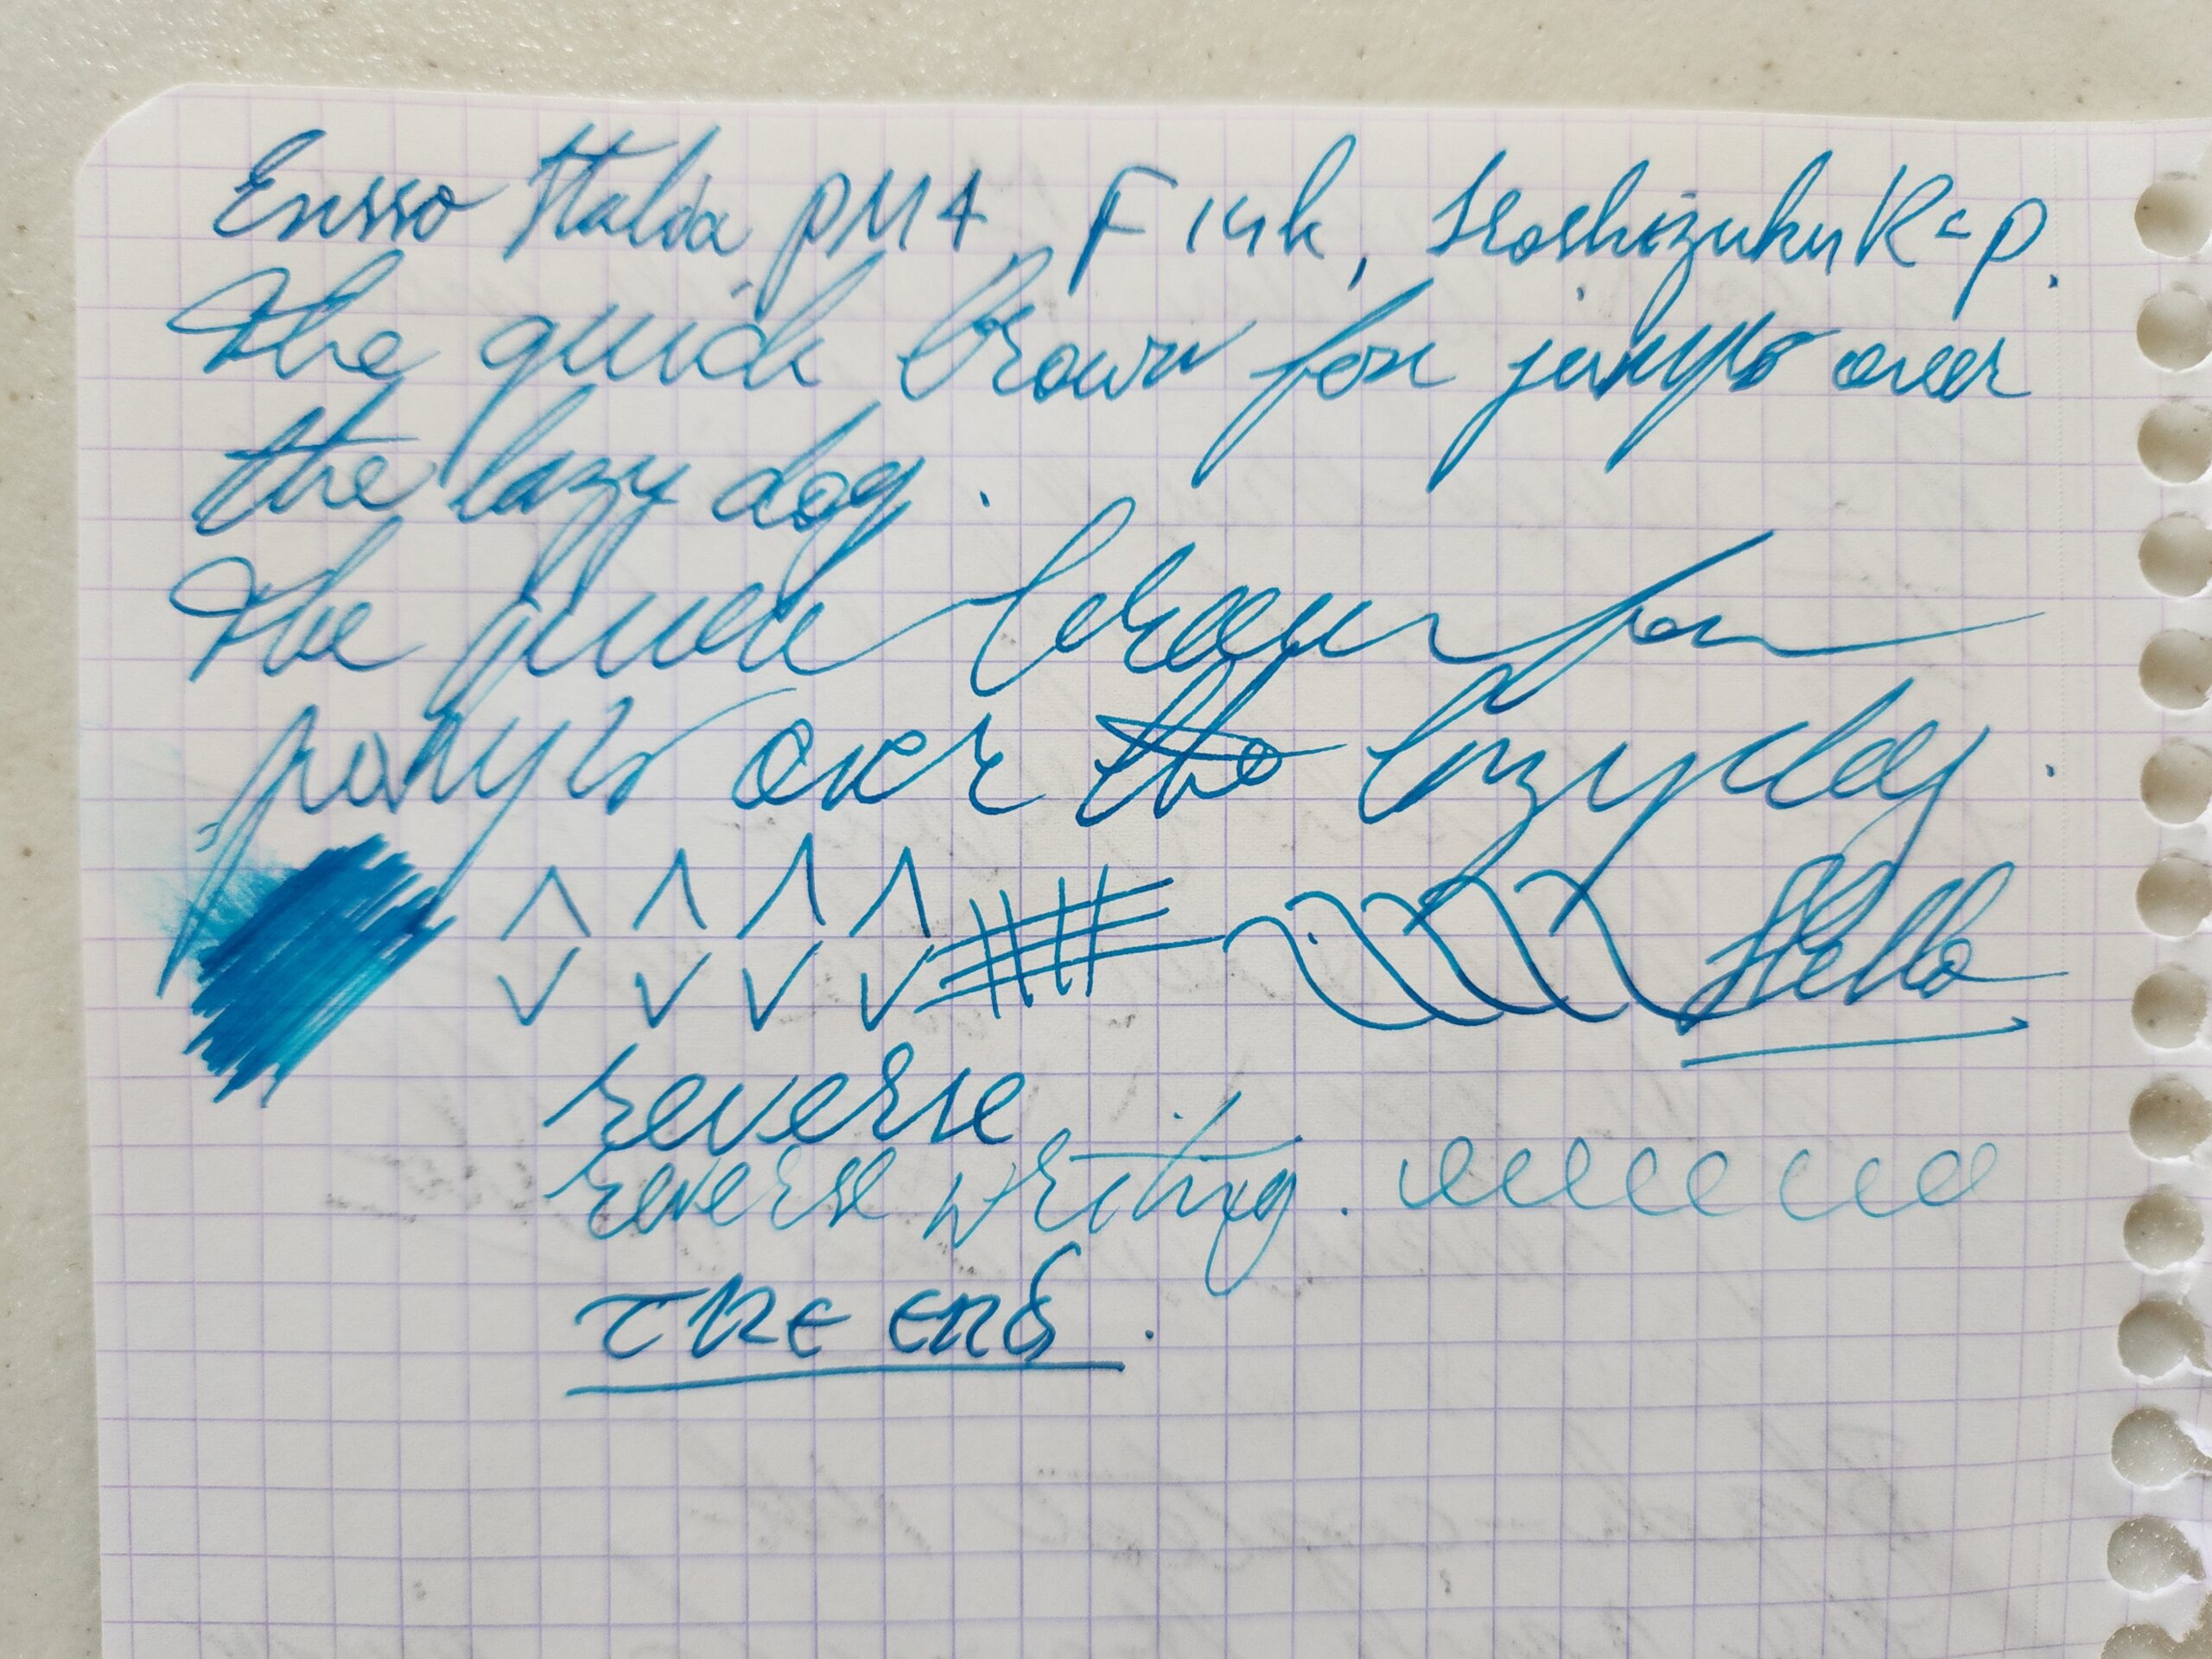 Ensso Italia PM4, F ink, Iroshizuku K-P.
The quick brown fox jumps over
the lazy dog.
The quick brown fox
jumps over the lazy dog.
Hello
reverse
reverse writing.
The end.